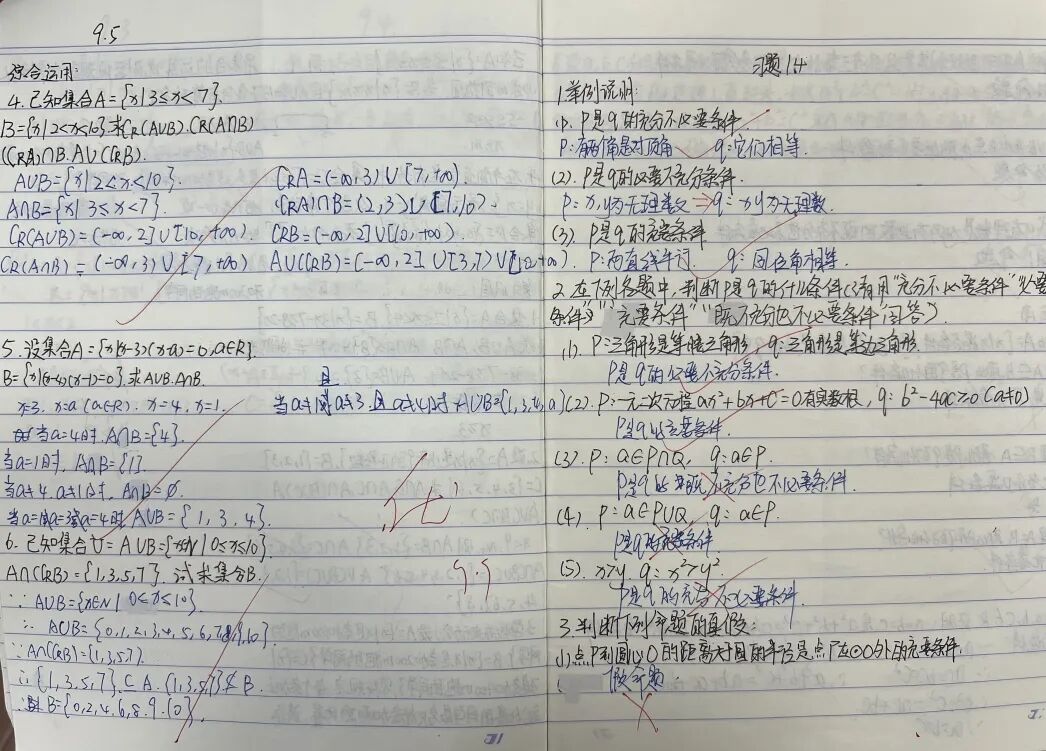 9.5
综合运用:
4.已知集合A={x|3≤x<7}.
B={x|2<x<10}.求CR(A∪B).CR(A∩B)
(CRA)∩B.A∪(CRB).
A∪B={x|2<x<10}. CRA=(-∞,3)∪[7,+∞).
A∩B={x|3≤x<7}. (CRA)∩B=(2,3)∪[7,10).
CR(A∪B)=(-∞,2]∪[10,+∞). CRB=(-∞,2]∪[10,+∞).
CR(A∩B)=(-∞,3)∪[7,+∞) A∪(CRB)=(-∞,2]∪[3,7)∪[10,+∞).
5.设集合A={x|(x-3)(x-a)=0,a∈R}.
B={x|(x-4)(x-1)=0}.求A∪B.A∩B.
x=3. x=a(a∈R). x=4. x=1. 当a≠1且a≠3且a≠4时.A∪B={1,3,4,a}
当a=4时.A∩B={4}.
当a=1时.A∩B={1}.
当a≠4.a≠1时.A∩B=∅.
当a=1或a=3或a=4时A∪B={1,3,4}.
6.已知集合U=A∪B={x∈N|0≤x≤10}.
A∩(CRB)={1,3,5,7}.试求集合B.
∵A∪B={x∈N|0≤x≤10}.
∴A∪B={0,1,2,3,4,5,6,7,8,9,10}
∵A∩(CRB)={1,3,5,7}.
∴{1,3,5,7}⊆A.{1,3,5,7}⊈B
∴B={0,2,4,6,8,9,10}.
9.5
习题1.4
1.举例说明:
(1).P是q的充分不必要条件.
P:有两角是对顶角 q:它们相等.
(2).P是q的必要不充分条件.
P:x,y为无理数 q:xy为无理数.
(3).P是q的充要条件
P:两直线平行 q:同位角相等.
2.在下列各题中,判断P是q的什么条件(请用"充分不必要条件""必要
条件""充要条件""既不充分也不必要条件"回答)
(1).P:三角形是等腰三角形,q:三角形是等边三角形.
P是q的必要不充分条件.
(2).P:一元二次方程ax²+bx+c=0有实数根,q:b²-4ac≥0(a≠0)
P是q的充要条件.
(3).P:a∈P∩Q, q:a∈P.
P是q的既不充分也不必要条件.
(4).P:a∈P∪Q, q:a∈P.
P是q的充要条件.
(5).x>y,q:x²>y².
P是q的充分不必要条件.
3.判断下列命题的真假:
(1)点P到圆心O的距离大于圆的半径是点P在⊙O外的充要条件.
假命题